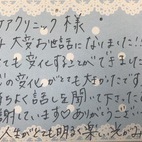 ケアクリニック様
大変お世話になりました!!
ても変化することができました
の変化がとても大きかったです
ちよく話しを聞いて下さった
謝しています♡ありがとうござい
人生がとても明るく楽しい